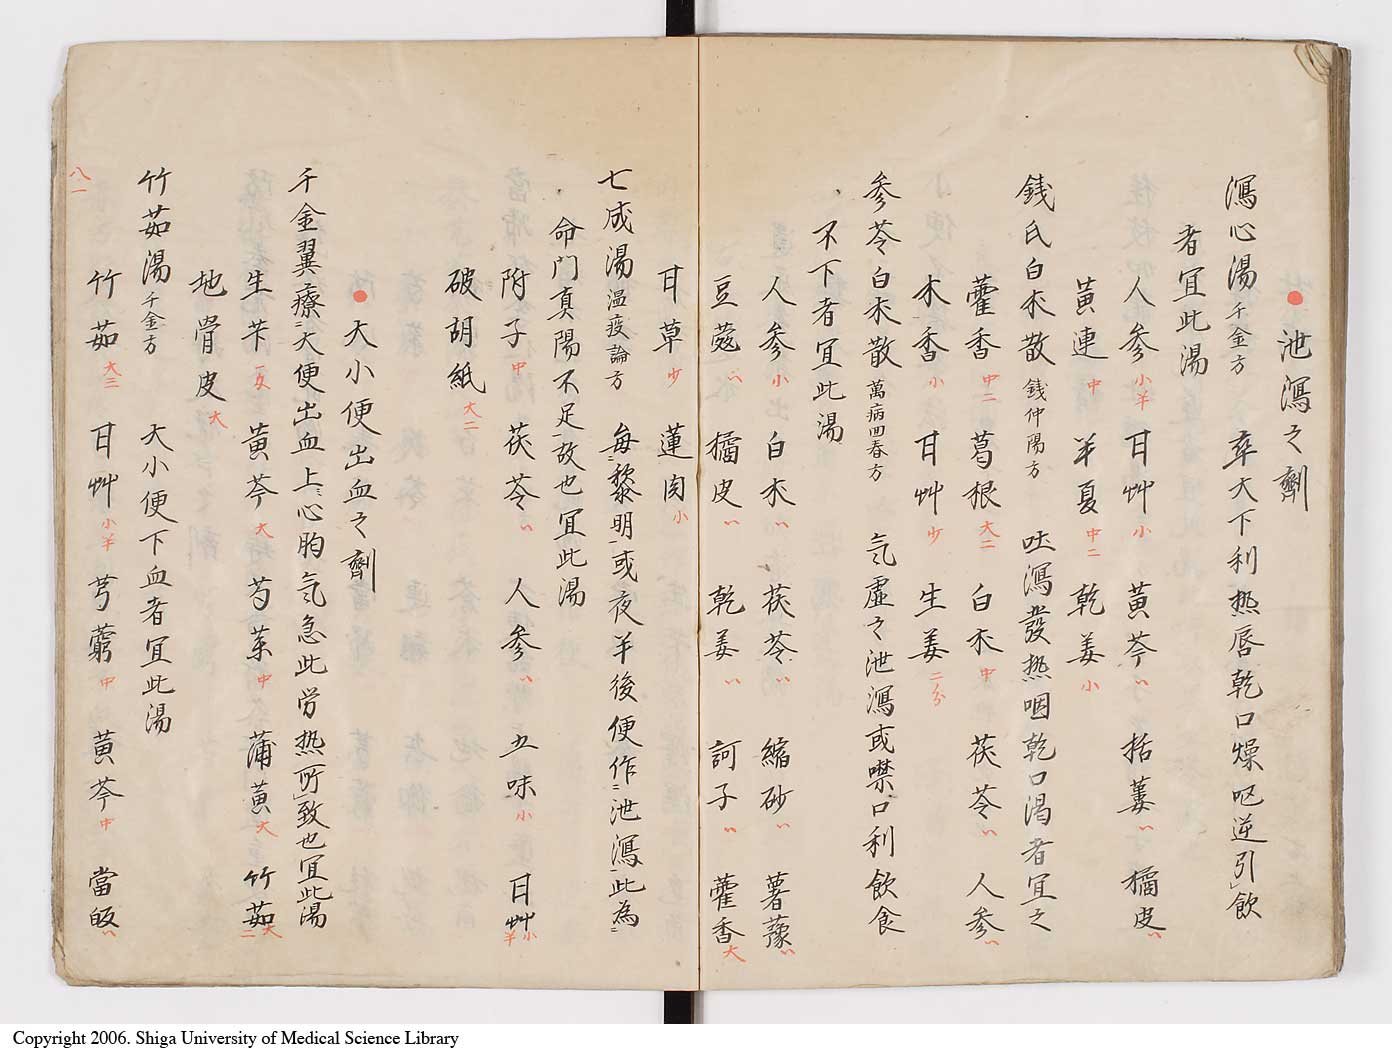 泄瀉之劑
瀉心湯 千金方 卒大下利熱唇乾口燥呕逆引飲
者宜此湯
人参 小半 甘艸 小 黄芩 〃 括蔞 〃 橘皮 〃
黄連 中 半夏 中二 乾姜 小
銭氏白朮散 銭仲陽方 吐瀉發熱咽乾口渇者宜之
藿香 中二 葛根 大二 白朮 中 茯苓 〃 人参 〃
木香 小 甘艸 少 生姜 二分
参苓白朮散 萬病回春方 氣虛之泄瀉或噤口利飲食
不下者宜此湯
人参 小 白朮 〃 茯苓 〃 縮砂 〃 薯蕷 〃
豆蔲 〃 橘皮 〃 乾姜 〃 訶子 〃 藿香 大
甘草 少 蓮肉 小
七成湯 温疫論方 毎黎明或夜半後便作泄瀉此為
命門真陽不足故也宜此湯
附子 中 茯苓 〃 人参 〃 五味 小 甘艸 小半
破胡紙 大二
大小便出血之劑
千金翼療大便出血上心胸氣急此労熱所致也宜此湯
生芐 黄芩 大 芍薬 中 蒲黄 大 竹茹 大二
地骨皮 大
竹茹湯 千金方 大小便下血者宜此湯
竹茹 大三 甘艸 小半 芎藭 中 黄芩 中 當皈 〃
八一
Copyright 2006. Shiga University of Medical Science Library